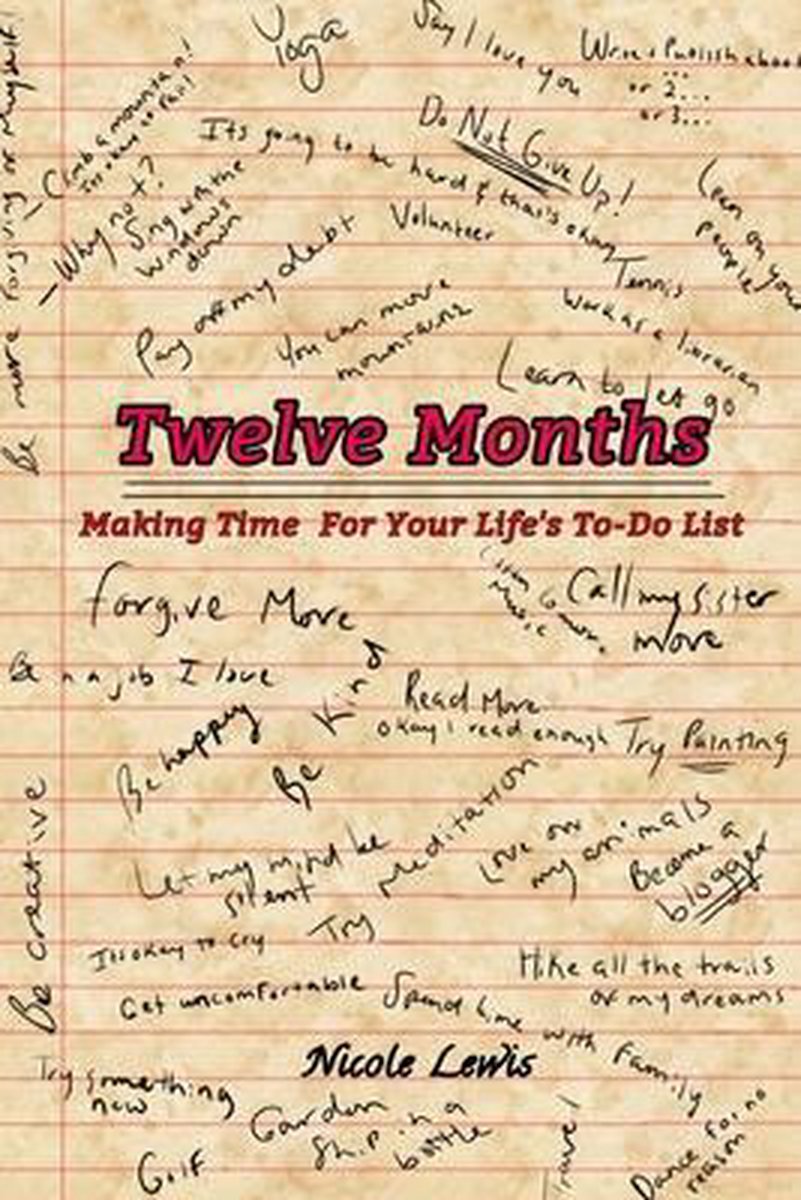 Yoga
Say I love you
Write & Publish a book
...
or 2...
or 3...
Climb a mountain!
Its okay to fail
Do Not Give Up!
Its going to be hard & thats okay
Be more forgiving of myself
Why not?
Sing with the
windows
down
Volunteer
Lean on your
people
Tennis
Pay off my debt
You can move
mountains
Work as a librarian
Learn to let go
Twelve Months
Making Time For Your Life's To-Do List
Forgive More
Listen to more
Music
Call my sister
more
Be in a job I love
Be Kind
Read More
okay I read enough
Try Painting
Be happy
Be creative
Let my mind be
silent
Try Meditation
Love on
my animals
Become a
blogger
Its okay to cry
Hike all the trails
of my dreams
Get uncomfortable
Spend time with family
Nicole Lewis
Try something
new
Garden
Ship in a
bottle
Golf
Travel
Dance for no
reason